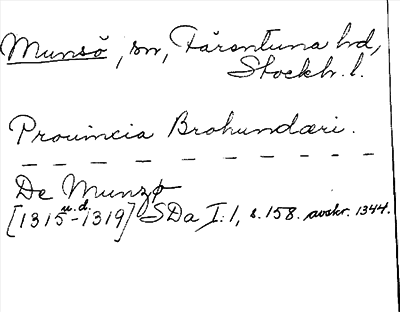 Munsö, sn, Färentuna hd,
Stockh. l.
Prouincia Brohundæri.
De Munzø
[1315 u.d. -1319] SDa I:1, s. 158. avskr. 1344.